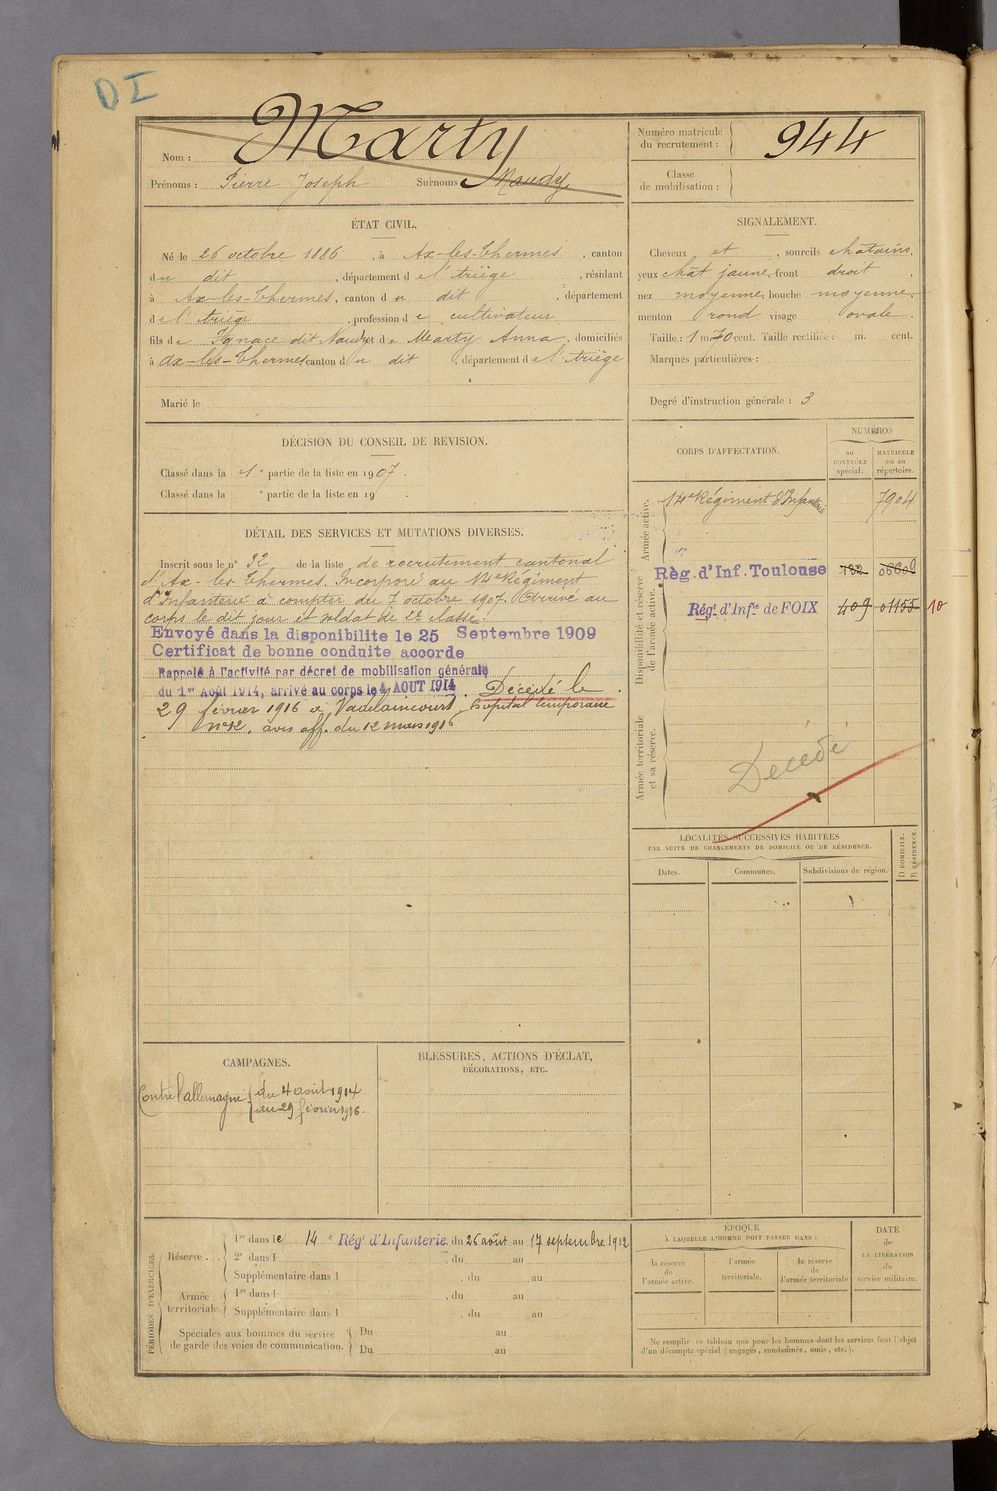 DI
Nom : Marty
Prénoms : Pierre Joseph Surnoms Naudy
Numéro matricule du recrutement : 944
Classe de mobilisation :
ÉTAT CIVIL.
Né le 26 octobre 1886, à Ax-les-Thermes, canton
du dit, département de l'Ariège, résidant
à Ax-les-Thermes, canton du dit, département
de l'Ariège, profession de cultivateur
fils de Ignace dit Naudy et de Marty Anna, domiciliés
à Ax-les-Thermes canton du dit, département de l'Ariège
Marié le
SIGNALEMENT.
Cheveux et, sourcils châtains,
yeux chât jaune, front droit
nez moyenne, bouche moyenne,
menton rond visage ovale.
Taille : 1 m 70 cent. Taille rectifiée : m. cent.
Marques particulières :
Degré d'instruction générale : 3
DÉCISION DU CONSEIL DE REVISION.
Classé dans la 1e partie de la liste en 1907.
Classé dans la e partie de la liste en 19 .
CORPS D'AFFECTATION.
NUMÉROS
au CONTRÔLE spécial.
MATRICULE ou au répertoire.
Armée active.
14e Régiment d'Infanterie 7904
Disponibilité et réserve de l'armée active.
Règ. d'Inf. Toulouse 132
Régt. d'Infie de FOIX 409 01155 10
Armée territoriale et sa réserve.
Décédé
DÉTAIL DES SERVICES ET MUTATIONS DIVERSES.
Inscrit sous le n° 32 de la liste de recrutement cantonal
d'Ax-les-Thermes. Incorporé au 14e Régiment
d'Infanterie à compter du 7 octobre 1907. Arrivé au
corps le dit jour et soldat de 2e classe.
Envoyé dans la disponibilite le 25 Septembre 1909
Certificat de bonne conduite accorde
Rappelé à l'activité par décret de mobilisation générale
du 1er Août 1914, arrivé au corps le 4 AOUT 1914. Décédé le
29 février 1916 à Vadelaincourt, hopital temporaire
n° 12. avis off. du 12 mars 1916
LOCALITÉS SUCCESSIVES HABITÉES
PAR SUITE DE CHANGEMENTS DE DOMICILE OU DE RÉSIDENCE.
Dates. Communes. Subdivisions de région.
D DOMICILE.
R RÉSIDENCE.
CAMPAGNES.
Contre l'allemagne { du 4 août 1914
au 29 février 1916.
BLESSURES, ACTIONS D'ÉCLAT,
DÉCORATIONS, ETC.
PÉRIODES D'EXERCICES.
Réserve... 1re dans le 14e Régt d'Infanterie. du 26 août au 17 septembre 1912
2e dans l . du au
Supplémentaire dans l . du au
Armée territoriale. 1re dans l . du au
Supplémentaire dans l . du au
Spéciales aux hommes du service Du au
de garde des voies de communication. Du au
ÉPOQUE
À LAQUELLE L'HOMME DOIT PASSER DANS :
la réserve de l'armée active.
l'armée territoriale.
la réserve de l'armée territoriale
DATE de LA LIBÉRATION du service militaire.
Ne remplir ce tableau que pour les hommes dont les services font l'objet
d'un décompte spécial (engagés, condamnés, omis, etc.).